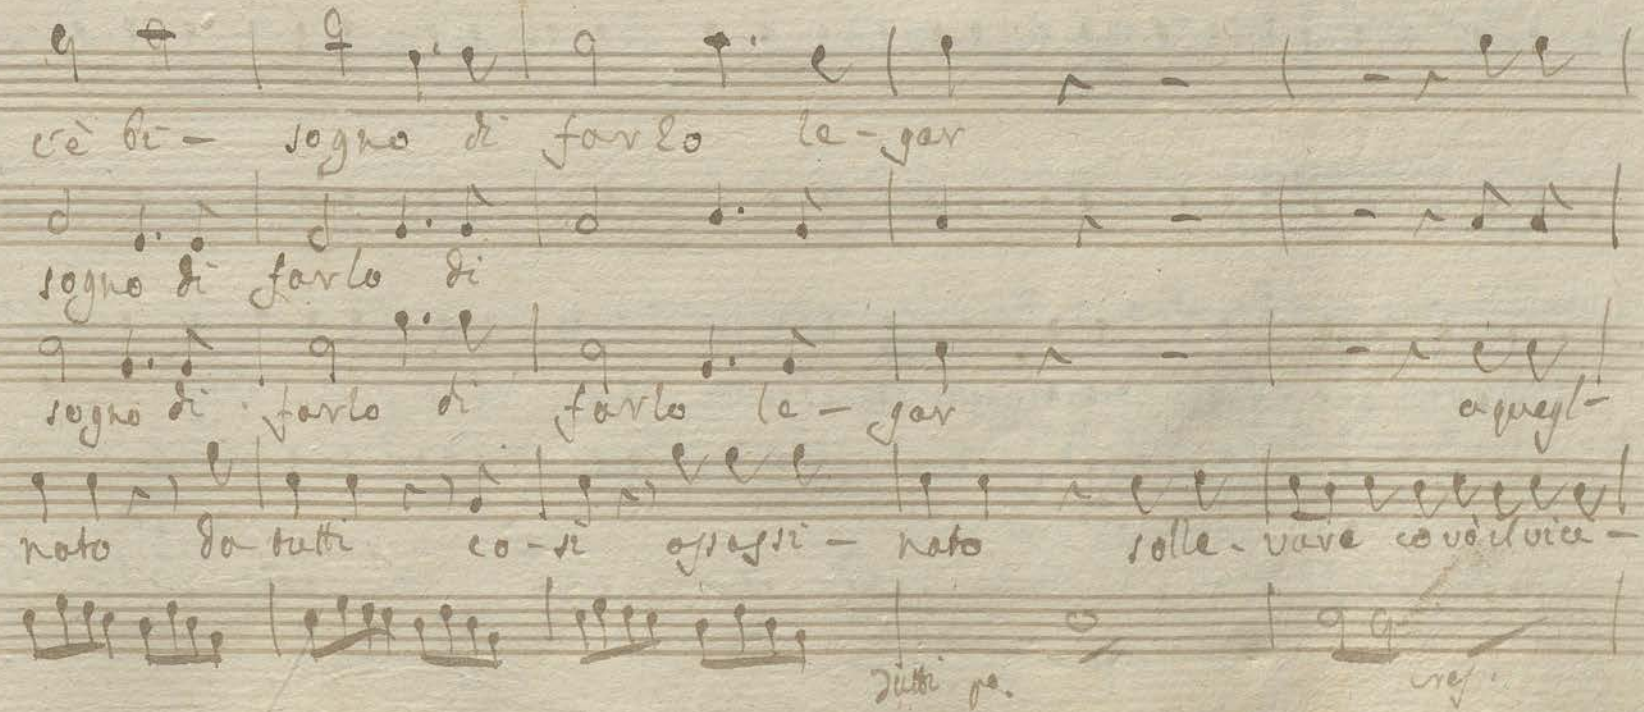 c'è bi- sogno di farlo le-gar
sogno di farlo di
sogno di farlo di farlo le-gar aquegl-
nato da tutti co-sì assassi-nato solle-vare co vò il vici-
Tutti po.
cres.